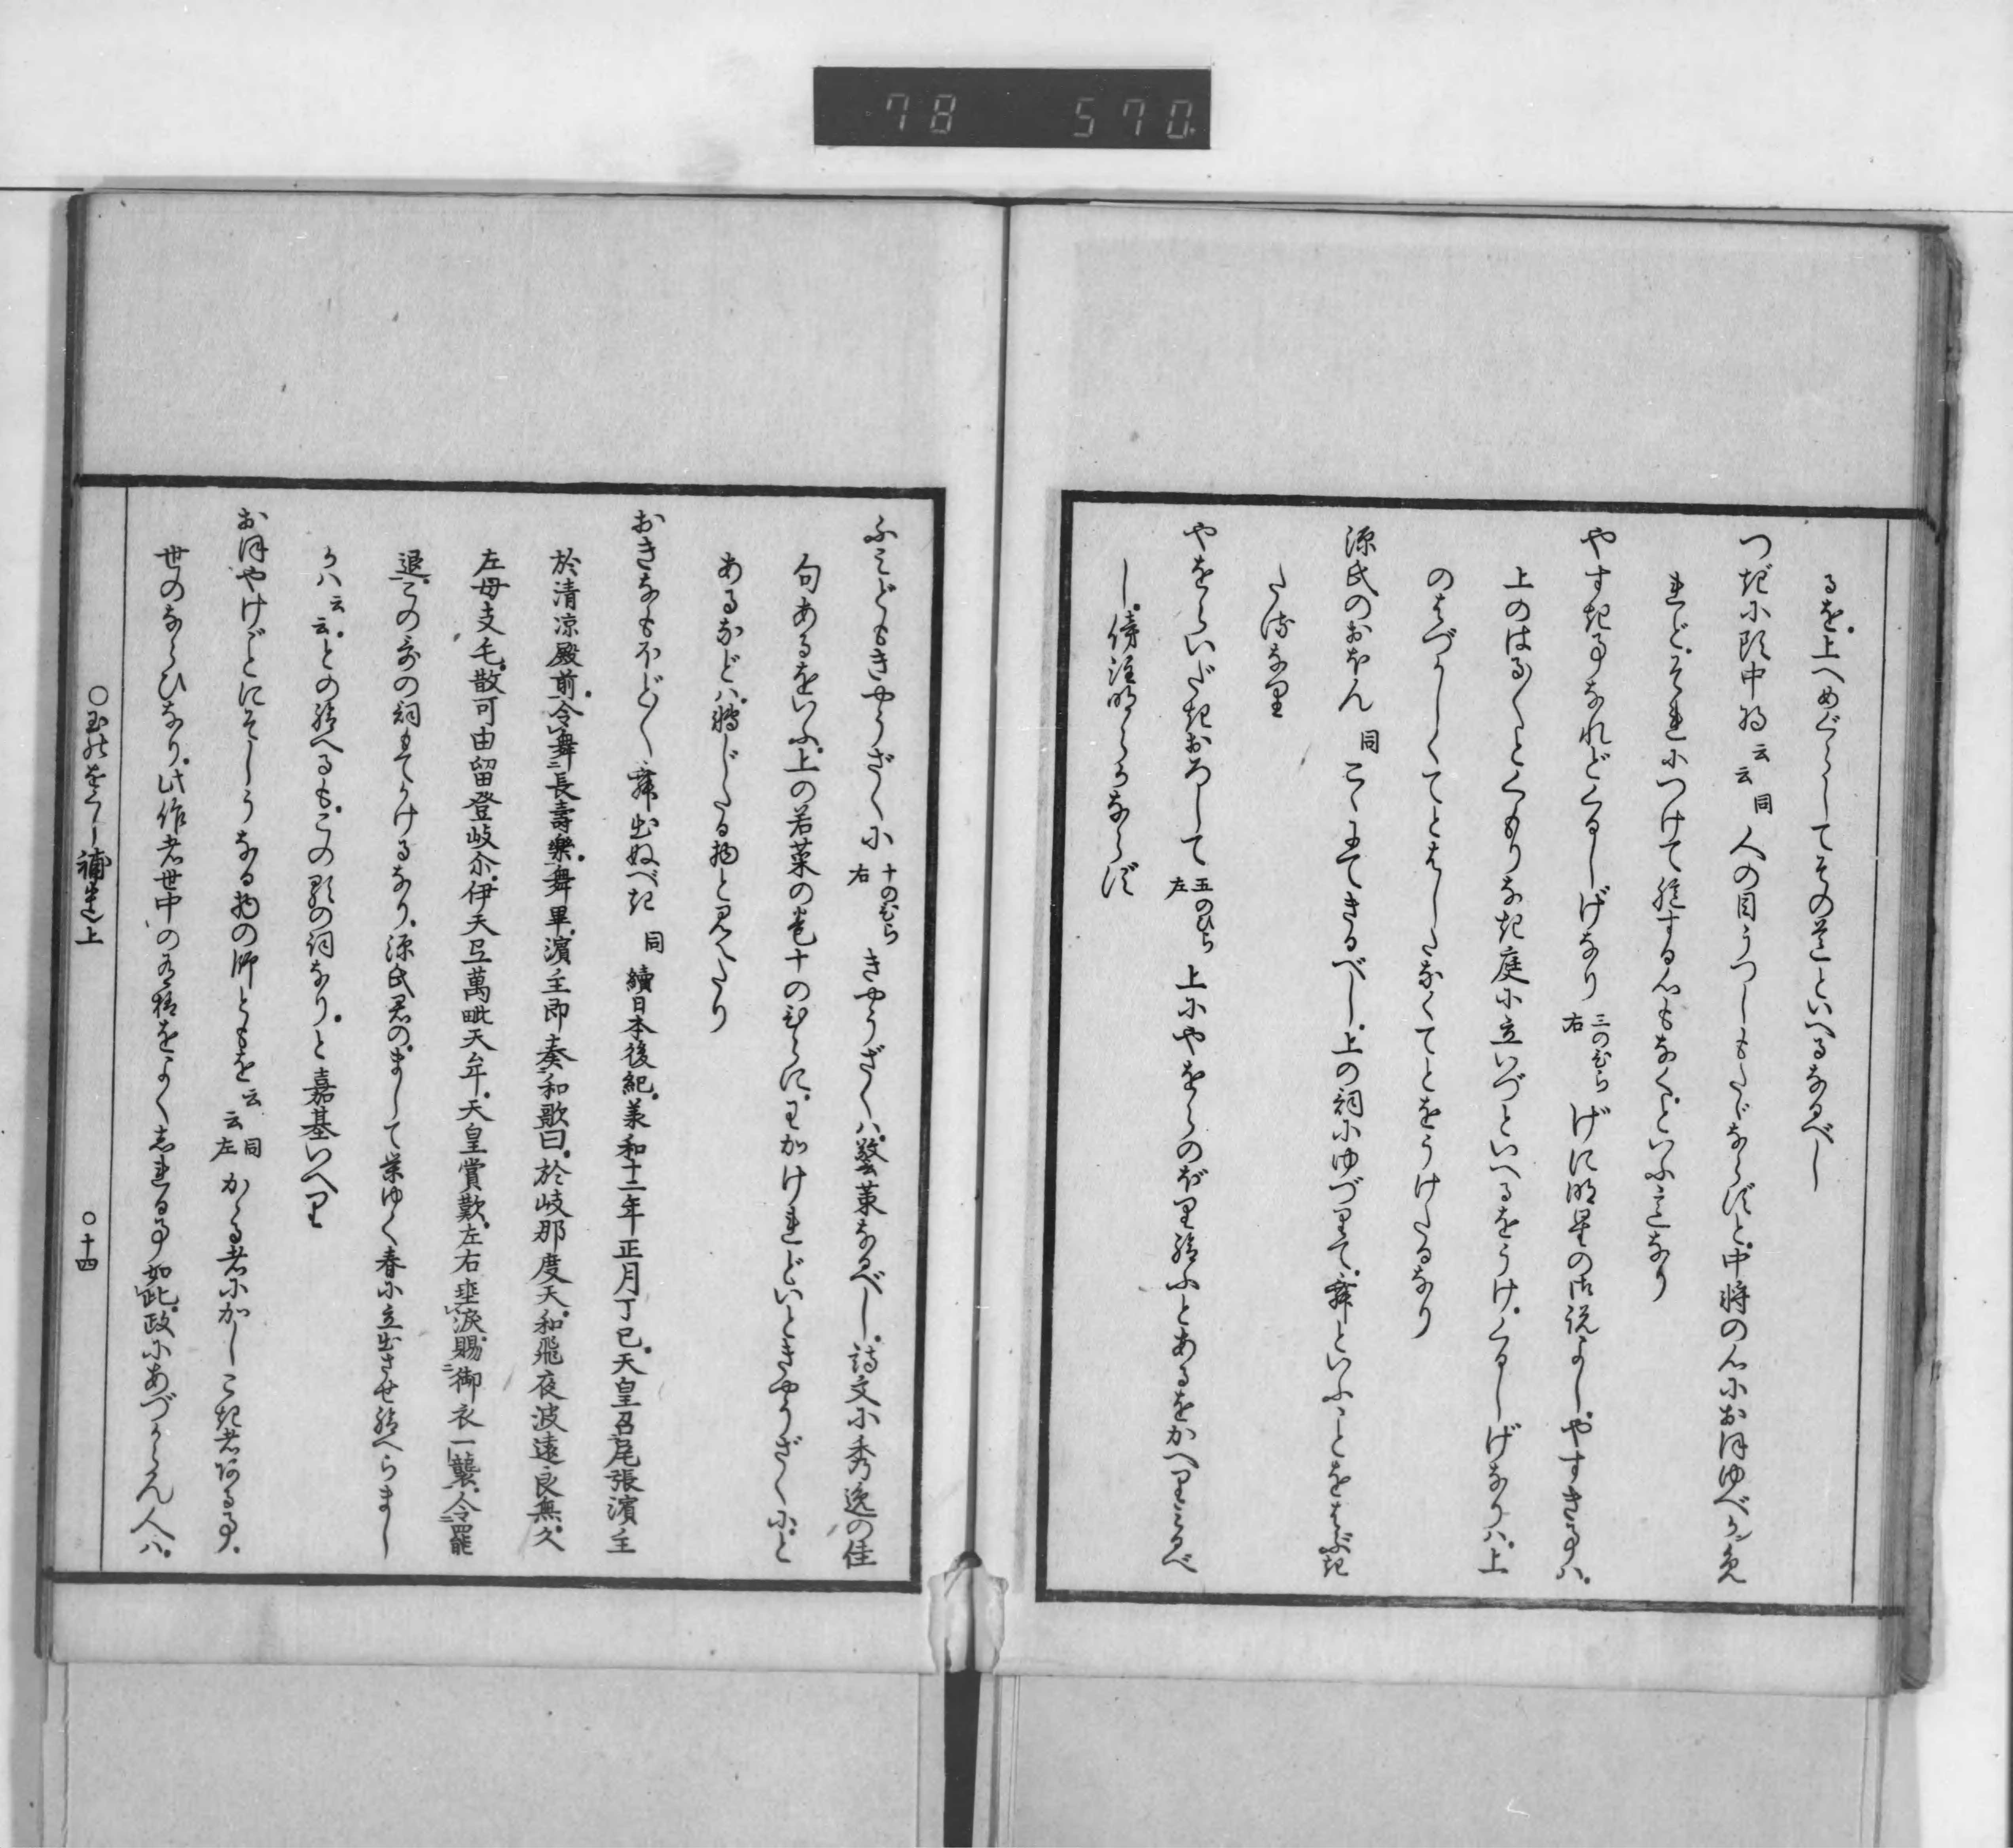 78 570
るを。上へめぐらしてその道といへるなるべし
つぎに頭中将 云云 同 人の目うつしもたゞならずと。中将の心におほゆべかめ
れど。それにつけて難する心もなくといふ意なり
やすき事なれどくるしげなり 三のひら右 げに明星の御説よし。やすき事ハ。
上のはる〱とくもりなき庭に立いづといへるをうけ。くるしげなりハ。上
のはづかしくてとはしたなくてとをうけたるなり
源氏のおほん 同 こゝにてきるべし。上の詞にゆづりて。舞といふことをはぶき
たるなり
やをらいだきおろして 五のひら左 上にやをらのぼり給ふとあるをかへりみるべ
し。傍注明らかならず
ふみどもきやうざくに 十のひら右 きやうざくハ。警策なるべし。詩文に秀逸の佳
句あるをいふ。上の若菜の巻十のひらに。わかけれどいときやうざくにと
あるなどハ。轉じたる物と見えたり
おきなもほど〱舞出ぬべき 同 續日本後紀。義和十二年正月丁巳。天皇召尾張濱主
於清凉殿前。令舞長壽樂。舞畢。濱主即奏和歌曰。於岐那度天。和飛夜波遠良無。久
左母支毛。散可由留登岐尓。伊天弖萬毗天牟。天皇賞歎。左右垂涙。賜御衣一襲。令罷
退。この哥の詞もてかけるなり。源氏君の。まして榮ゆく春に立出させ給へらまし
かハ云云。との給へるも。この歌の詞なり。と嘉基いへり
おほやけごとにそしうなる物の師ともを 云云 同左 かゝる者にかしこき者ある事。
世のならひなり。此作者世中の有様をよくしれる事如此。政にあづからん人ハ。
○玉のをぐし補遺上 ○十四